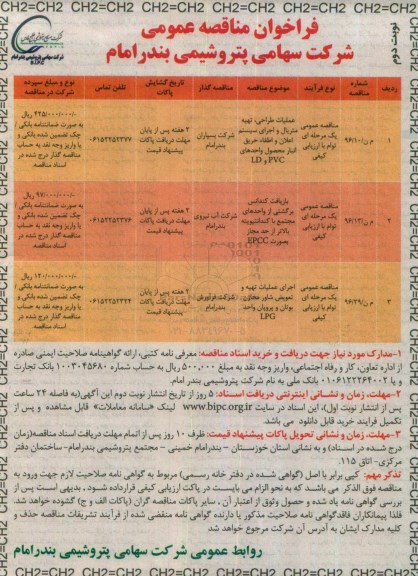 فراخوان مناقصه عمومی
شرکت سهامی پتروشیمی بندرامام
نوبت دوم
شرکت سهامی پتروشیمی بندرامام
B.I.P.C
ردیف
شماره مناقصه
نوع فرآیند
موضوع مناقصه
مناقصه گذار
تاریخ گشایش پاکات
تلفن تماس
نوع و مبلغ سپرده شرکت در مناقصه
۱
م ن/۹۶/۱۰
مناقصه عمومی یک مرحله ای توام با ارزیابی کیفی
عملیات طراحی، تهیه متریال و اجرای سیستم اعلان و اطفاء حریق انبار محصول واحدهای PVC و LD
شرکت بسپاران بندرامام
۲ هفته پس از پایان مهلت دریافت پاکات پیشنهاد قیمت
۰۶۱۵۲۲۵۲۳۷۷
۴۲۵/۰۰۰/۰۰۰/- ریال
به صورت ضمانتنامه بانکی و چک تضمین شده بانکی و یا واریز وجه نقد به حساب مناقصه گذار درج شده در اسناد مناقصه
۲
م ن/۹۶/۱۳
مناقصه عمومی یک مرحله ای توام با ارزیابی کیفی
بازیافت کندانس برگشتی از واحدهای مجتمع با کنداکتیویته بالاتر از حد مجاز بصورت EPCC
شرکت آب نیروی بندرامام
۲ هفته پس از پایان مهلت دریافت پاکات پیشنهاد قیمت
۰۶۱۵۲۲۵۲۳۷۶
۹۷/۰۰۰/۰۰۰/- ریال
به صورت ضمانتنامه بانکی و چک تضمین شده بانکی و یا واریز وجه نقد به حساب مناقصه گذار درج شده در اسناد مناقصه
۳
م ن/۹۶/۲۹
مناقصه عمومی یک مرحله ای توام با ارزیابی کیفی
اجرای عملیات تهیه و تعویض شاور مخازن بوتان و پروپان واحد LPG
شرکت فرآورش بندرامام
۲ هفته پس از پایان مهلت دریافت پاکات پیشنهاد قیمت
۰۶۱۵۲۲۵۲۳۲۴
۱۲۰/۰۰۰/۰۰۰/- ریال
به صورت ضمانتنامه بانکی و چک تضمین شده بانکی و یا واریز وجه نقد به حساب مناقصه گذار درج شده در اسناد مناقصه
۱-مدارک مورد نیاز جهت دریافت و خرید اسناد مناقصه: معرفی نامه کتبی، ارائه گواهینامه صلاحیت ایمنی صادره
از اداره تعاون، کار و رفاه اجتماعی، واریز وجه نقد به مبلغ ۵۰۰,۰۰۰ ریال به حساب شماره ۱۰۰۳۰۴۵۶۸۰ بانک تجارت
و یا ۰۱۰۶۱۲۲۲۶۴۰۰۲ بانک ملی به نام شرکت پتروشیمی بندر امام.
۲-مهلت، زمان و نشانی اینترنتی دریافت اسناد: ۵ روز از تاریخ انتشار نوبت دوم این آگهی(به فاصله ۲۴ ساعت
پس از انتشار نوبت اول)، این اسناد در سایت www.bipc.org.ir لینک «سامانه معاملات» قابل مشاهده و پس از
تکمیل فرایند خرید قابل دانلود می باشد.
۳-مهلت، زمان و نشانی تحویل پاکات پیشنهاد قیمت: ظرف ۱۰ روز پس از اتمام مهلت دریافت اسناد مناقصه(زمان
درج شده در اسناد) و به نشانی استان خوزستان - بندرامام خمینی - مجتمع پتروشیمی بندرامام-ساختمان دفتر
مرکزی- اتاق ۱۱۵.
تذکر مهم: کپی برابر با اصل (گواهی شده در دفتر خانه رسمی) مربوط به گواهی نامه صلاحیت لازم جهت ورود به
مناقصه فوق الذکر می باشد که به نحو الزام می بایست در پاکت ارزیابی کیفی قرارداده شود، بدیهی است پس از
بررسی گواهی نامه یاد شده و حصول وثوق از اعتبار آن، سایر پاکات مناقصه گران (پاکات الف و ج) گشوده خواهد شد.
فلذا پیمانکاران فاقدگواهی نامه صلاحیت مذکور یا دارنده گواهی نامه منقضی شده از فرآیند تشریفات مناقصه حذف و
کلیه مدارک ایشان به آدرس آن شرکت مرجوع خواهد شد
روابط عمومی شرکت سهامی پتروشیمی بندرامام